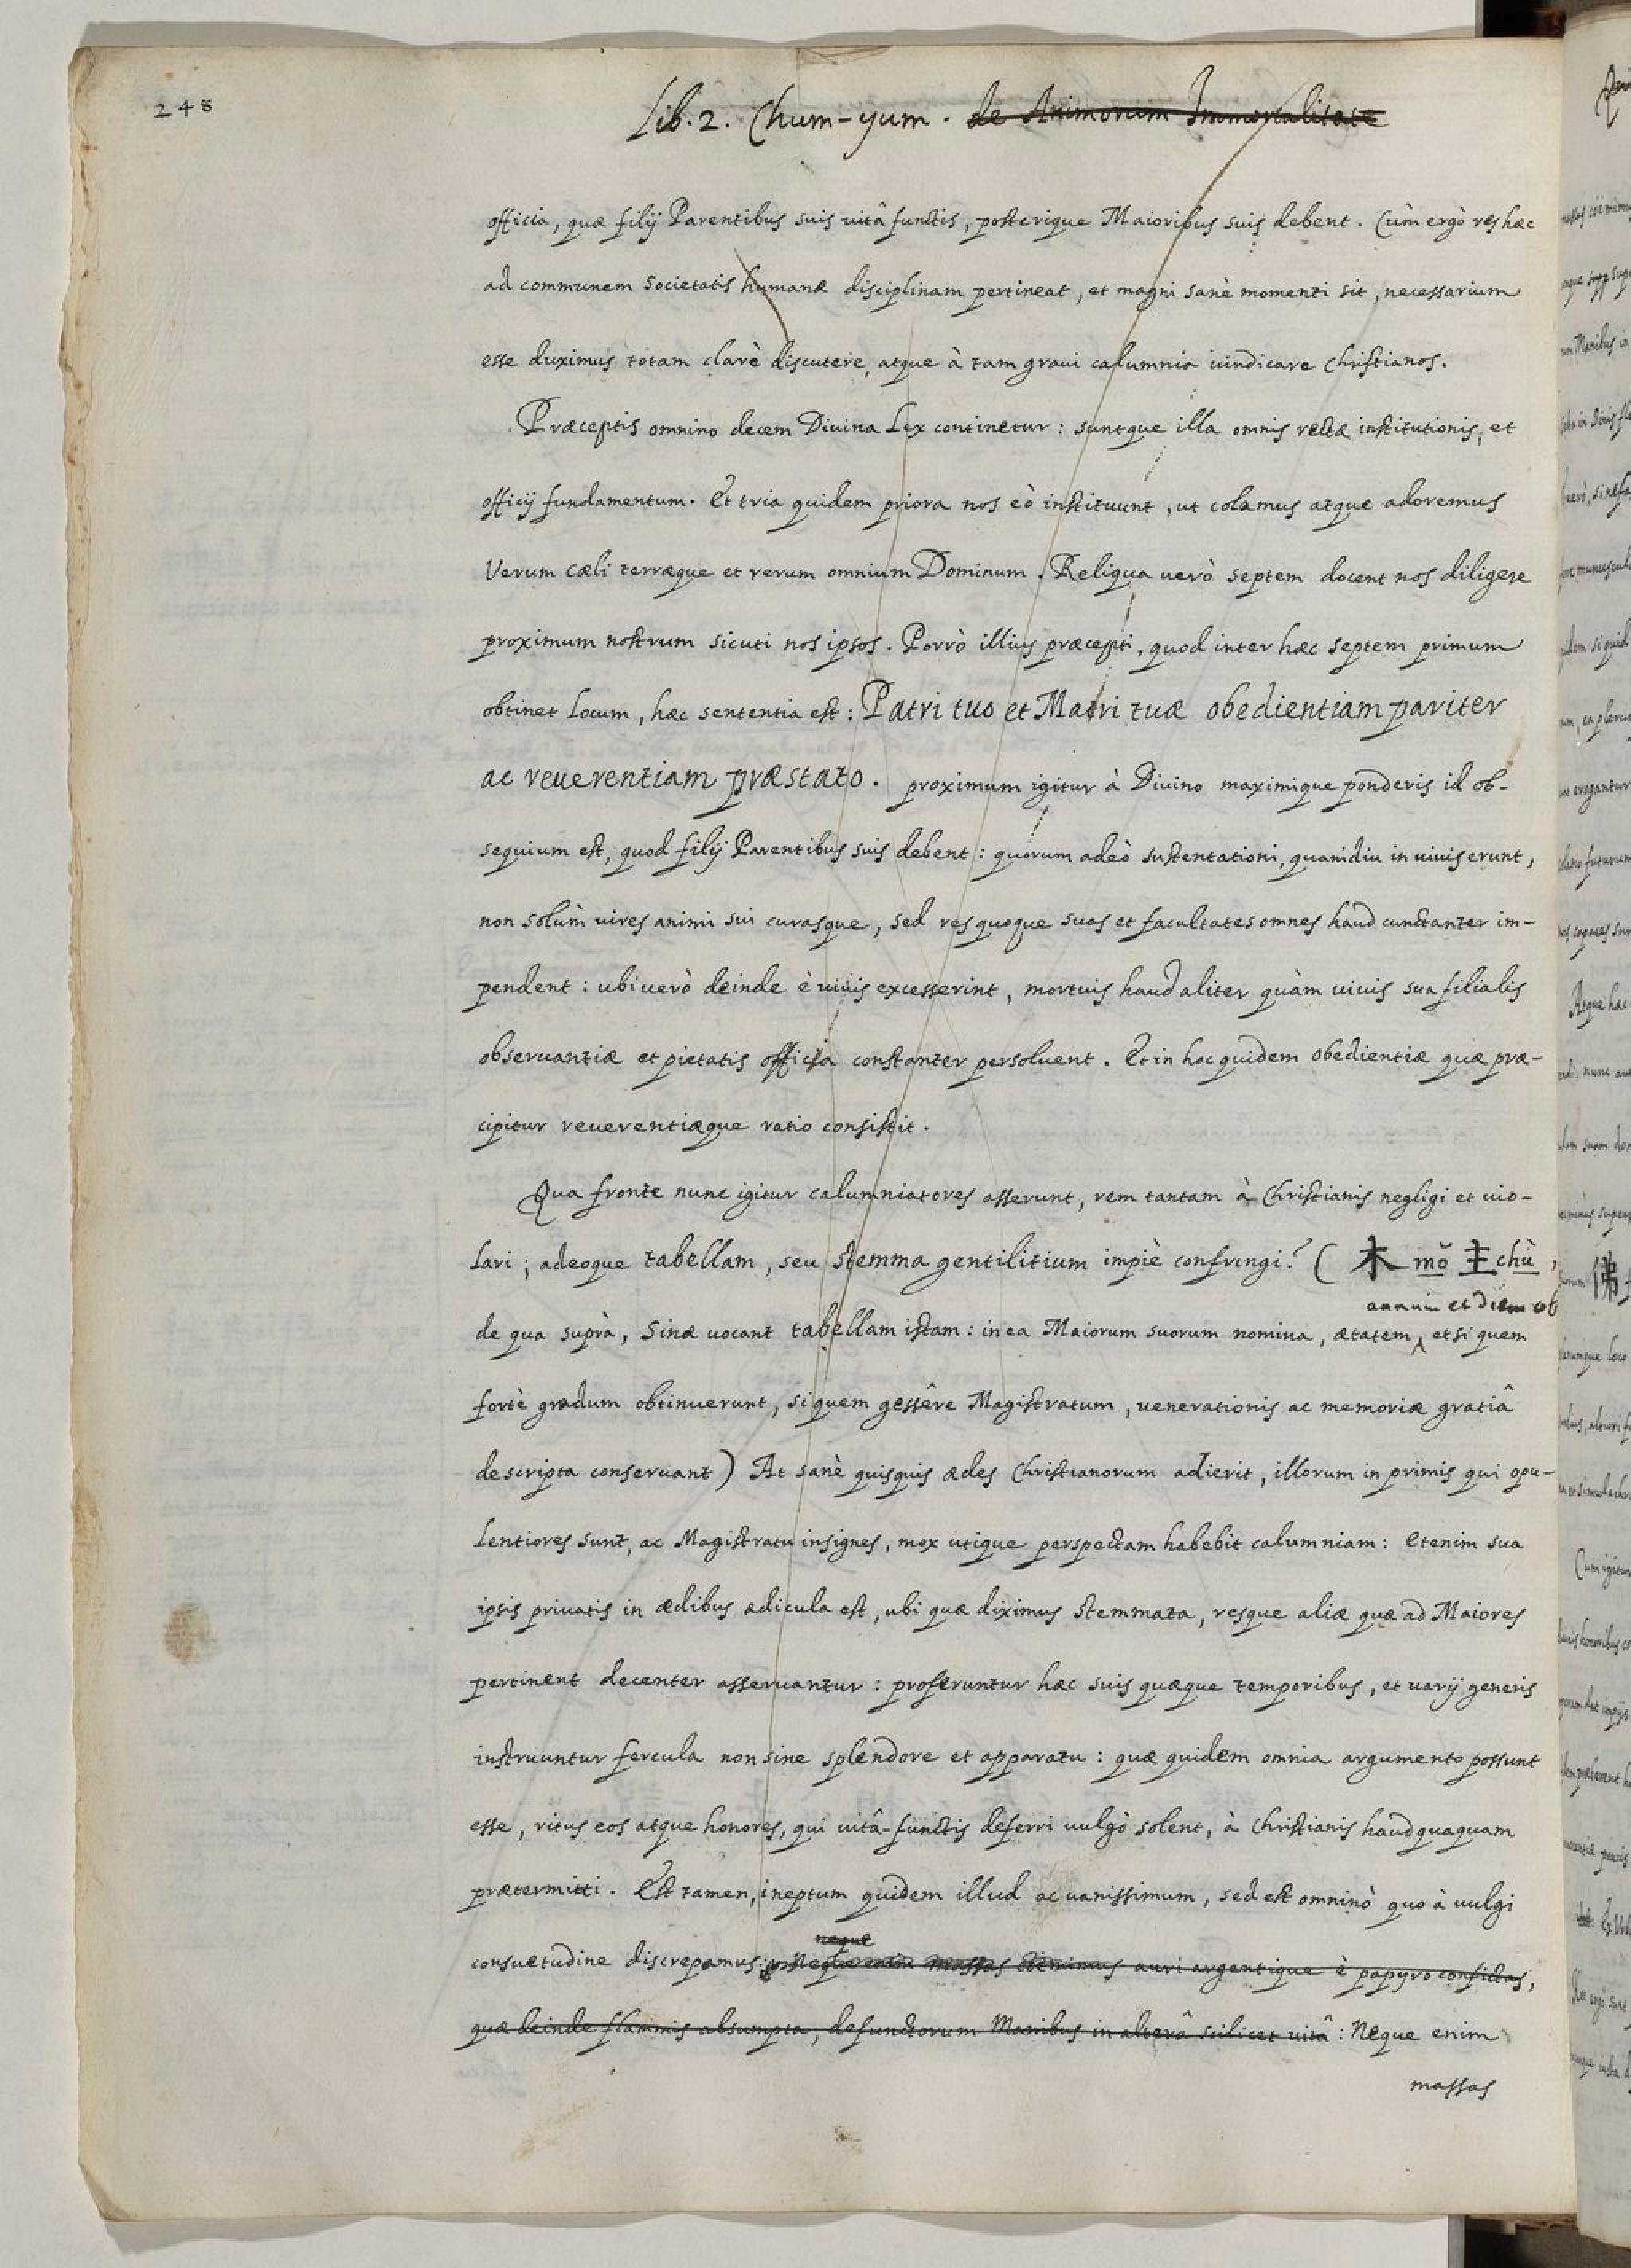 248
Lib. 2. Chum-yum. de Animorum Immortalitate
officia, quæ filij Parentibus suis uitâ functis, posterique Maioribus suis debent. Cùm ergò res hæc
ad communem societatis humanæ disciplinam pertineat, et magni sanè momenti sit, necessarium
esse duximus totam clarè discutere, atque à tam graui calumnia uindicare Christianos.
Præceptis omnino decem Diuina Lex continetur: suntque illa omnis rectæ institutionis, et
officij fundamentum. Et tria quidem priora nos eò instituunt, ut colamus atque adoremus
Verum cæli terræque et rerum omnium Dominum. Reliqua uerò septem docent nos diligere
proximum nostrum sicuti nos ipsos. Porrò illius præcepti, quod inter hæc septem primum
obtinet locum, hæc sententia est: Patri tuo et Matri tuæ obedientiam pariter
ac reuerentiam præstato. proximum igitur à Diuino maximique ponderis id ob-
sequium est, quod filij Parentibus suis debent: quorum adeò sustentationi, quamdiu in uiuis erunt,
non solùm uires animi sui curasque, sed res quoque suas et facultates omnes haud cunctanter im-
pendent: ubi uerò deinde è uiuis excesserint, mortuis haud aliter quàm uiuis sua filialis
obseruantiæ et pietatis officia constanter persoluent. Et in hoc quidem obedientiæ quæ præ-
cipitur reuerentiæque ratio consistit.
Qua fronte nunc igitur calumniatores asserunt, rem tantam à Christianis negligi et uio-
lari; adeoque tabellam, seu stemma gentilitium impiè confringi? (木 mŏ 主 chù,
annum et diem ob
de qua suprà, Sinæ uocant tabellam istam: in ea Maiorum suorum nomina, ætatem, et si quem
fortè gradum obtinuerunt, si quem gessêre Magistratum, uenerationis ac memoriæ gratiâ
descripta conseruant) At sanè quisquis ædes Christianorum adierit, illorum in primis qui opu-
lentiores sunt, ac Magistratu insignes, mox utique perspectam habebit calumniam: etenim sua
ipsis priuatis in ædibus ædicula est, ubi quæ diximus stemmata, resque aliæ quæ ad Maiores
pertinent decenter asseruantur: proferuntur hæc suis quæque temporibus, et uarij generis
instruuntur fercula non sine splendore et apparatu: quæ quidem omnia argumento possunt
esse, ritus eos atque honores, qui uitâ-functis deferri uulgò solent, à Christianis haudquaquam
prætermitti. Est tamen, ineptum quidem illud ac uanissimum, sed est omninò quo à uulgi
neque
consuetudine discrepamus: Neque enim massas coëmimus auri argentique è papyro confictas,
quæ deinde flammis absumpta, defunctorum Manibus in alterâ scilicet uitâ: Neque enim
massas